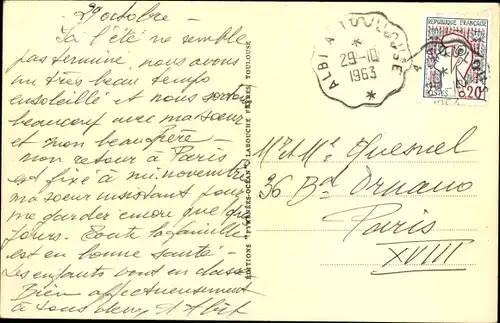 29 octobre —
Ici l'été ne semble
pas terminé, nous avons
un très beau temps
ensoleillé et nous sortons
beaucoup avec ma sœur
et mon beau frère —
mon retour à Paris
est fixé à mi-novembre
ma sœur insistant pour
me garder encore quelques
jours. Toute la famille
est en bonne santé —
Les enfants vont en classe
Bien affectueusement
à tous deux
EDITIONS "PYRÉNÉES-OCÉAN" LABOUCHE FRÈRES, TOULOUSE
ALBI A TOULOUSE
29-10
1963
RÉPUBLIQUE FRANÇAISE
POSTES 0,20
Mr et Me Quesnel
36 Bd Ornano
Paris
XVIII